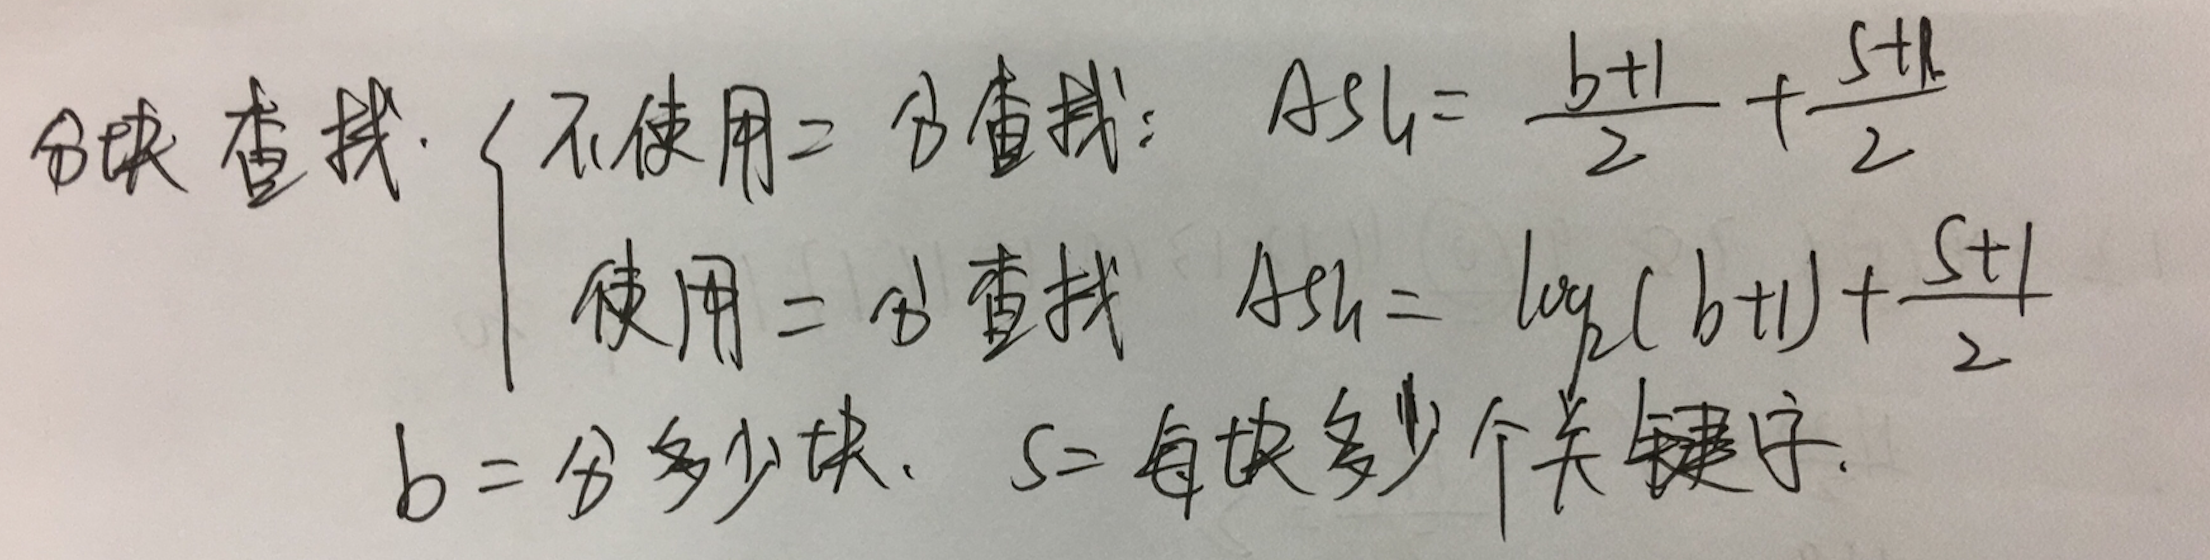 分块查找. { 不使用二分查找: ASL = \frac{b+1}{2} + \frac{s+1}{2}
使用二分查找 ASL = log₂(b+1) + \frac{s+1}{2}
b = 分多少块. s = 每块多少个关键字.